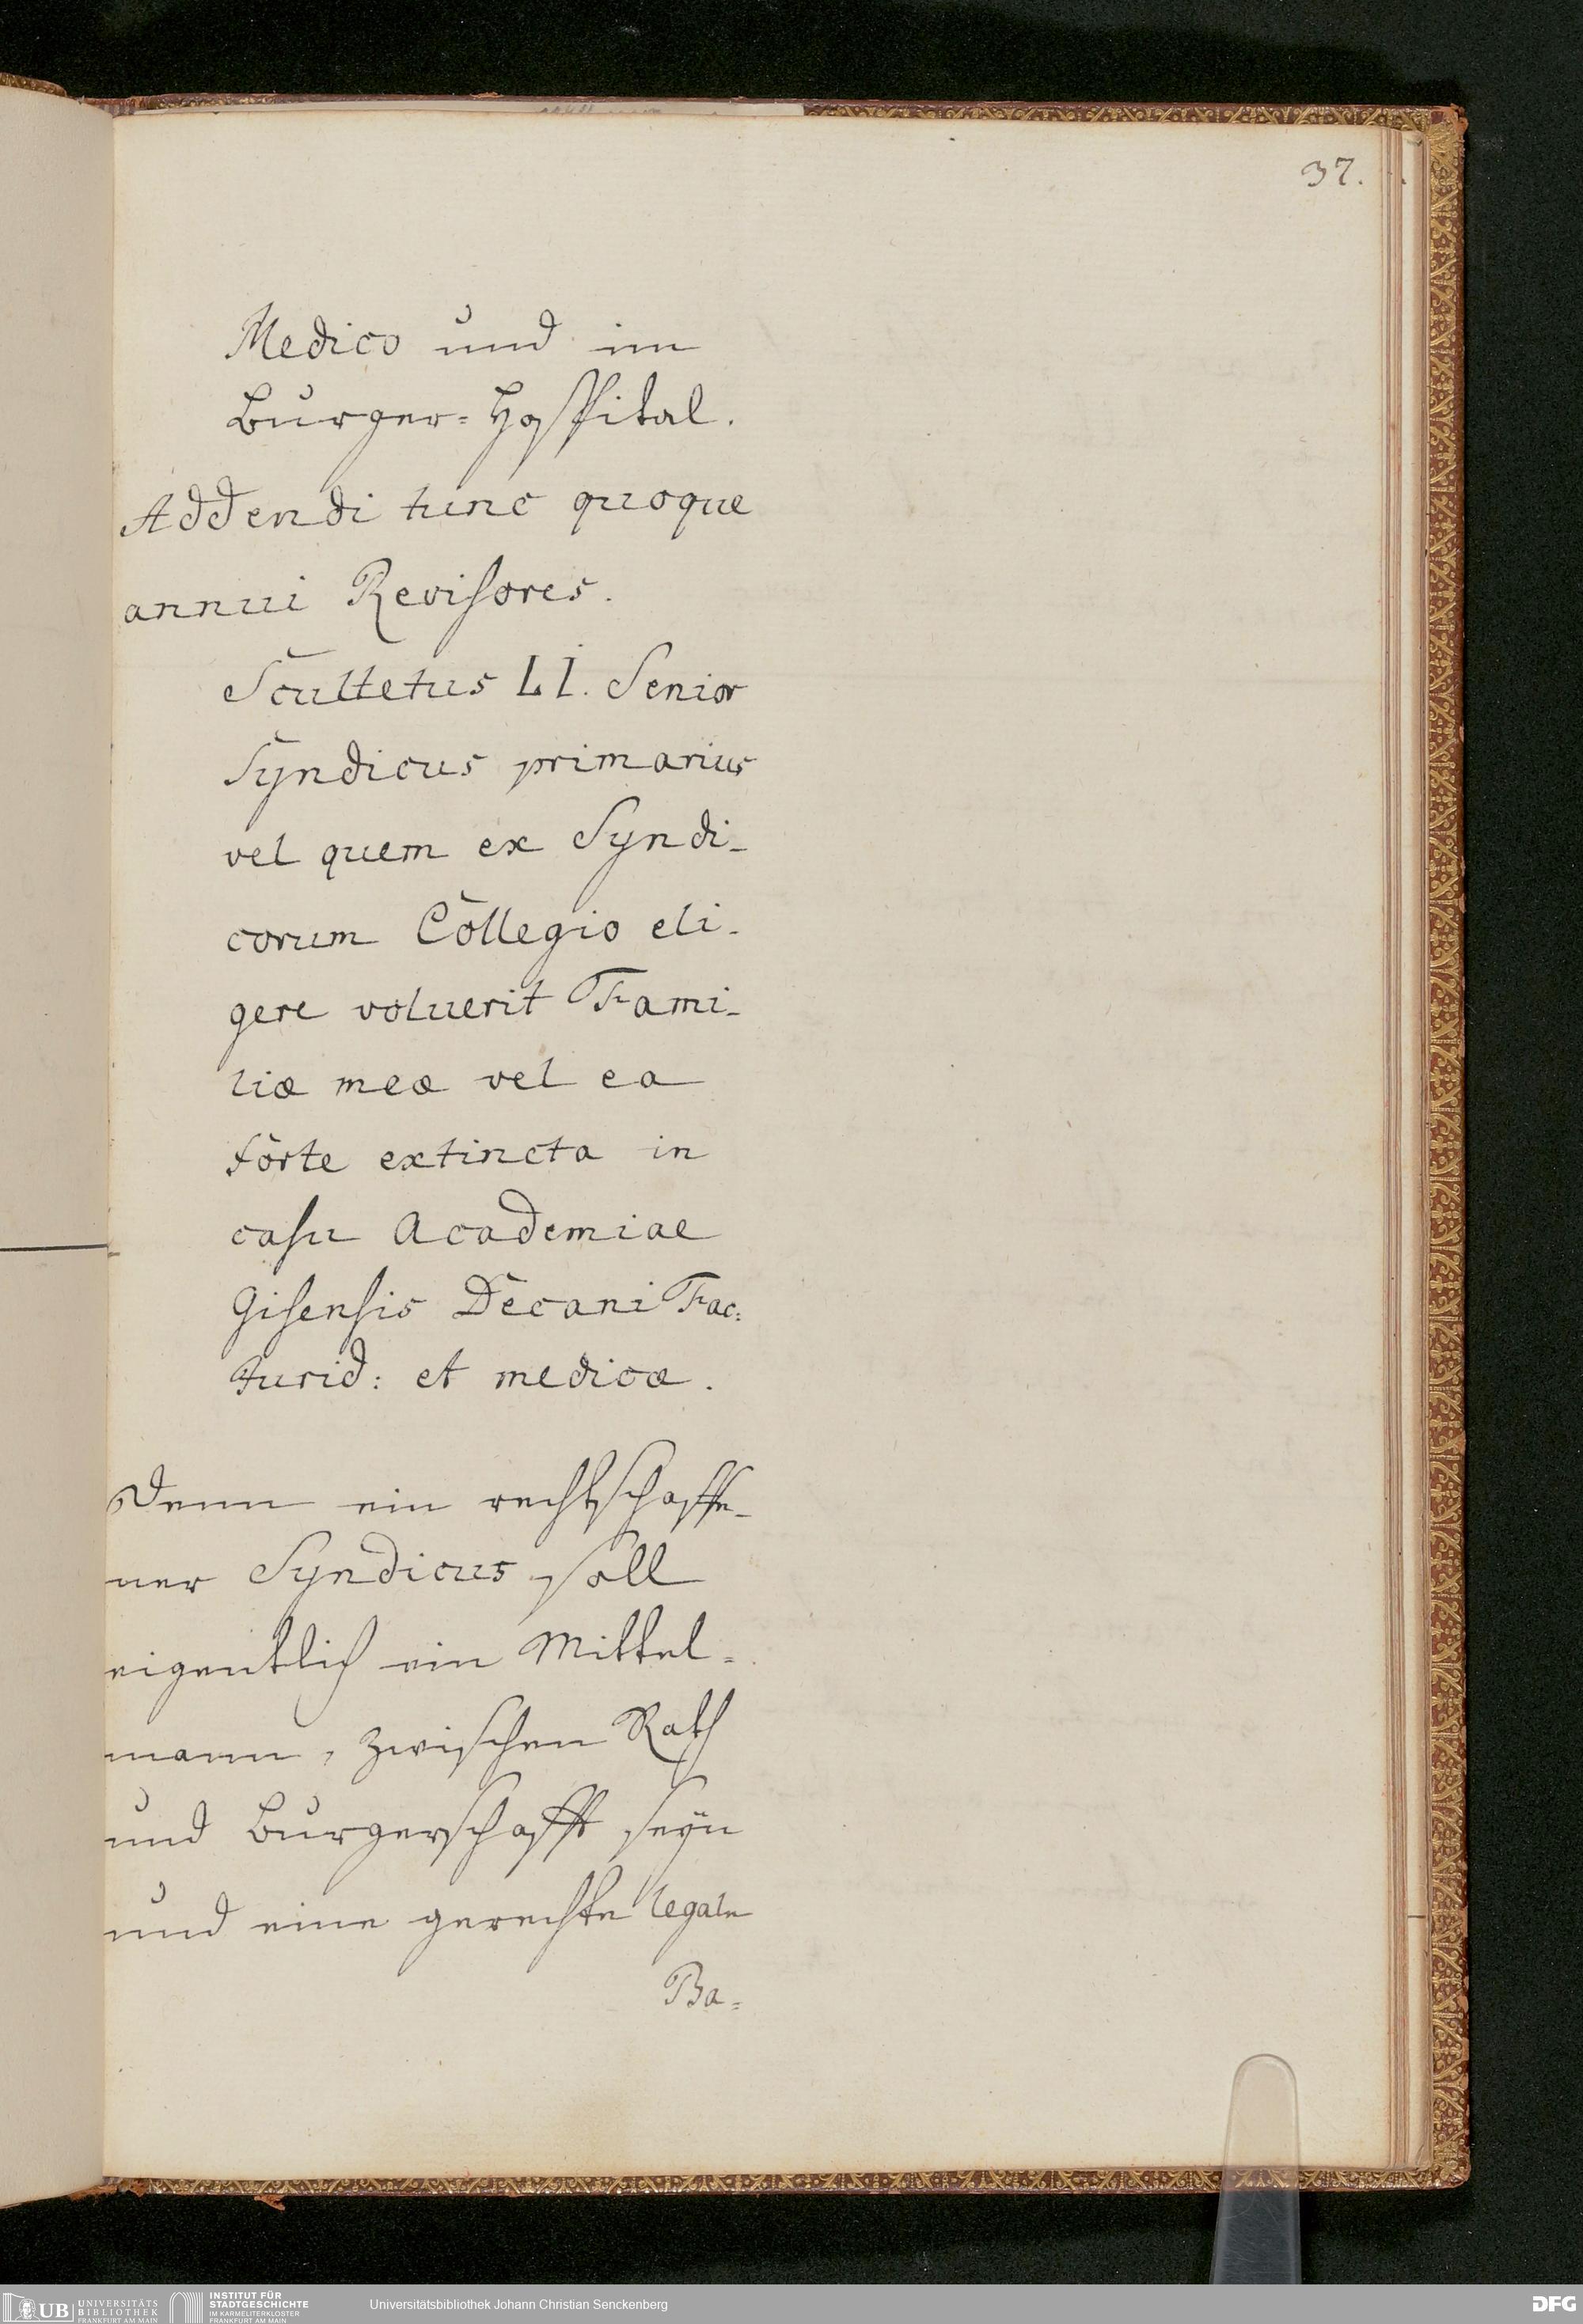 37.
Medico und im
Burger=Hospital.
Addendi tunc quoque
annui Revisores.
Scultetus LI. Senior
Syndicus primarius
vel quem ex Syndi-
corum Collegio eli-
gere voluerit Fami-
liæ meæ vel ea
forte extincta in
casu Academiae
Gisensis Decani Fac:
Jurid: et medicæ.
Denn ein rechtschaffe-
ner Syndicus soll
eigentlich ein Mittel=
mann, zwischen Rath
und Burgerschafft seÿn
und eine gerechte legale
Ba=
UB UNIVERSITÄTS
BIBLIOTHEK
FRANKFURT AM MAIN
INSTITUT FÜR
STADTGESCHICHTE
IM KARMELITERKLOSTER
FRANKFURT AM MAIN
Universitätsbibliothek Johann Christian Senckenberg
DFG